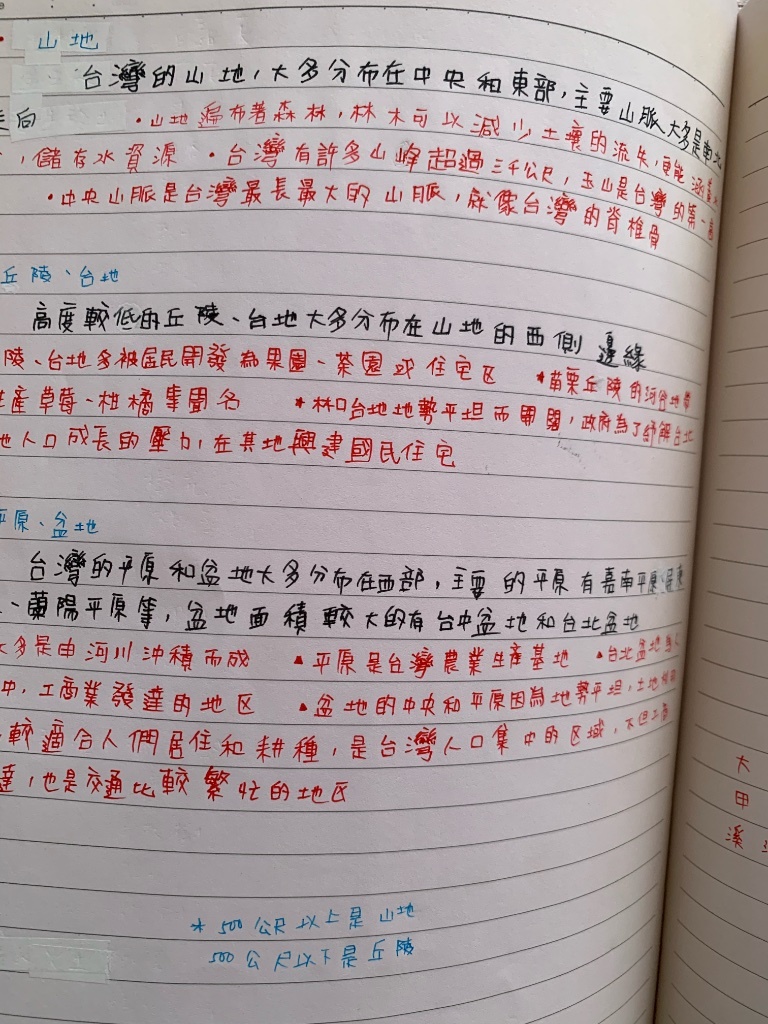 山地
台灣的山地，大多分布在中央和東部，主要山脈大多是南北
走向
・山地遍布著森林，林木可以減少土壤的流失，更能涵養水
，儲存水資源 ・台灣有許多山峰超過三千公尺，玉山是台灣的第一高
・中央山脈是台灣最長最大的山脈，就像台灣的脊椎骨
丘陵、台地
高度較低的丘陵、台地大多分布在山地的西側邊緣
陵、台地多被居民開發為果園、茶園或住宅區 *苗栗丘陵的河谷地帶
產草莓、柑橘聞名 *林口台地地勢平坦而開闊，政府為了紓解台北
地人口成長的壓力，在其地興建國民住宅
平原、盆地
台灣的平原和盆地大多分布在西部，主要的平原有嘉南平原、屏東
、蘭陽平原等，盆地面積較大的有台中盆地和台北盆地
大多是由河川沖積而成 ▲平原是台灣農業生產基地 ▲台北盆地為人
中，工商業發達的地区 ▲盆地的中央和平原因為地勢平坦，土地
較適合人們居住和耕種，是台灣人口集中的区域，不但工商
達，也是交通比較繁忙的地区
*500公尺以上是山地
500公尺以下是丘陵
大
甲
溪